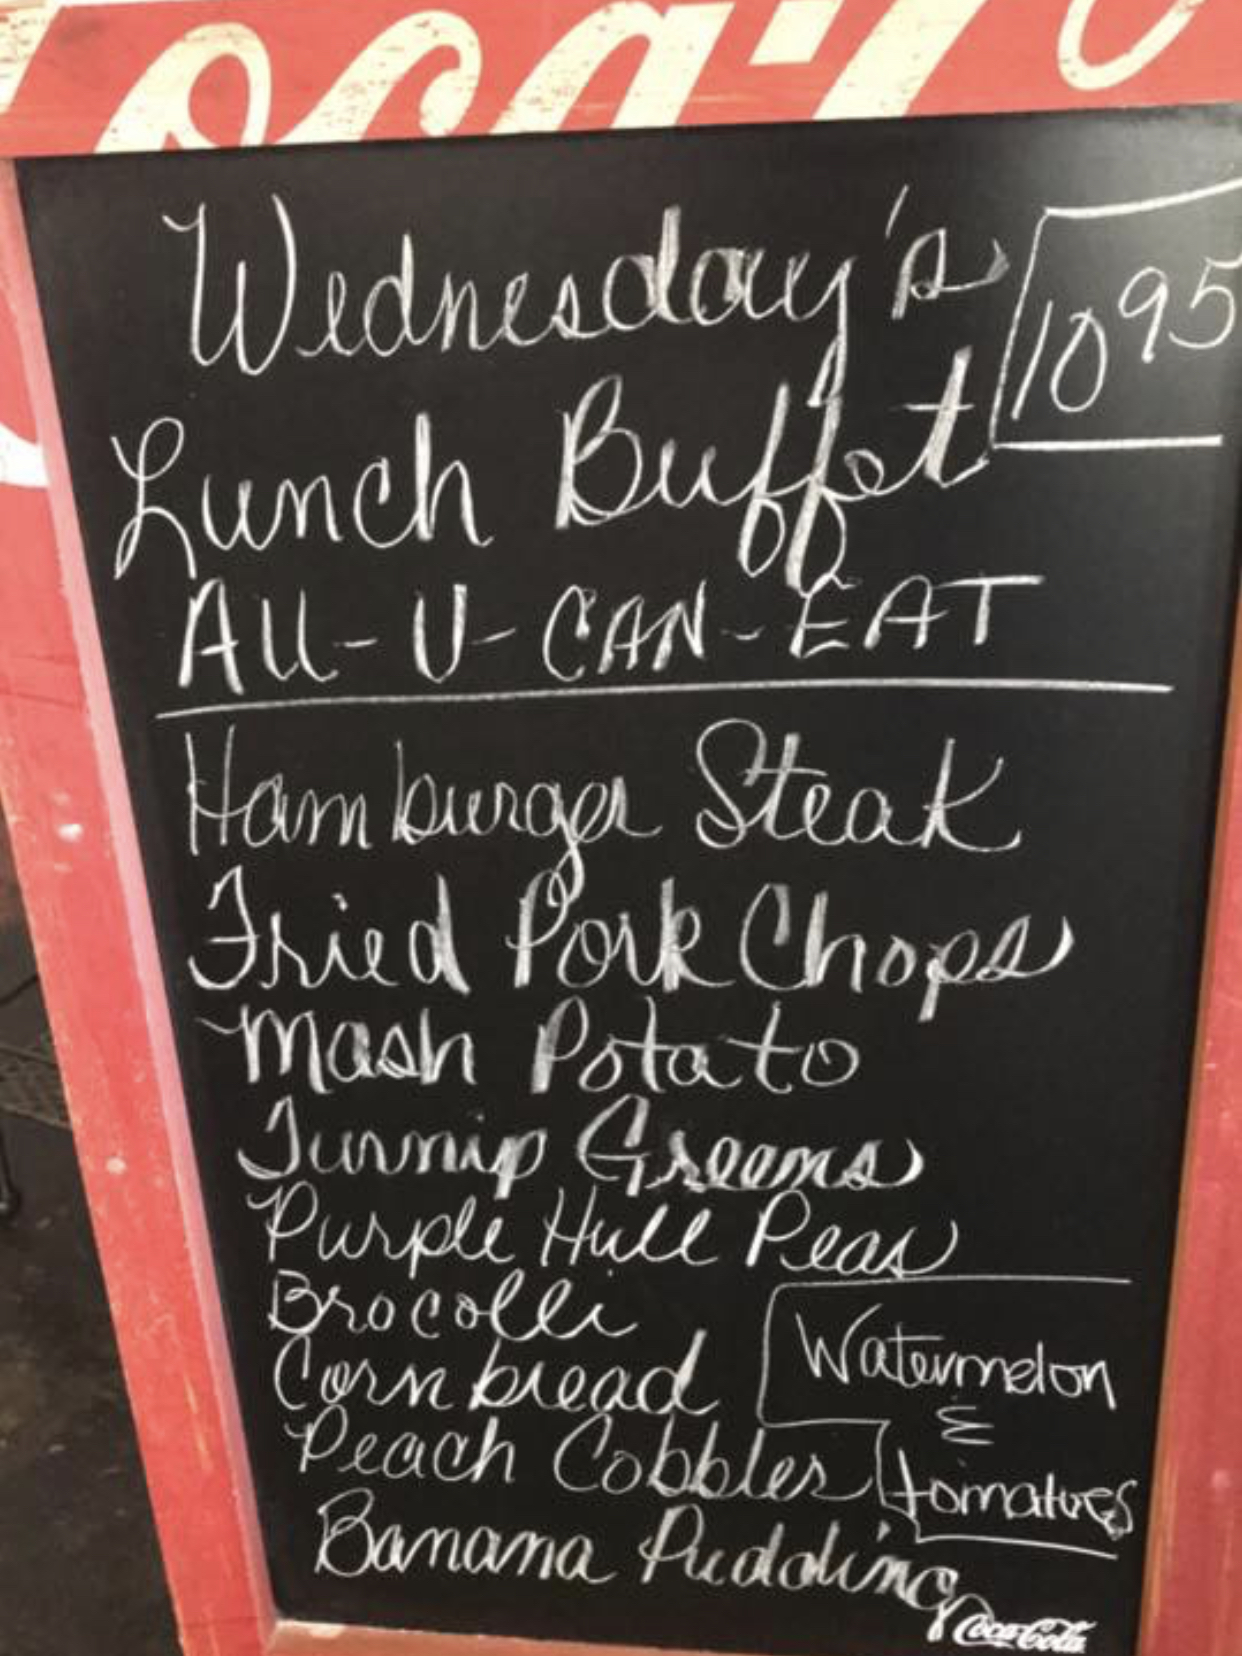 Coca-Co
Wednesday's
10 95
Lunch Buffet
All-U-CAN-EAT
Hamburger Steak
Fried Pork Chops
Mash Potato
Turnip Greens
Purple Hull Peas
Brocolli
Corn bread
Peach Cobbler
Banana Pudding
Watermelon
&
tomatoes
Coca-Cola